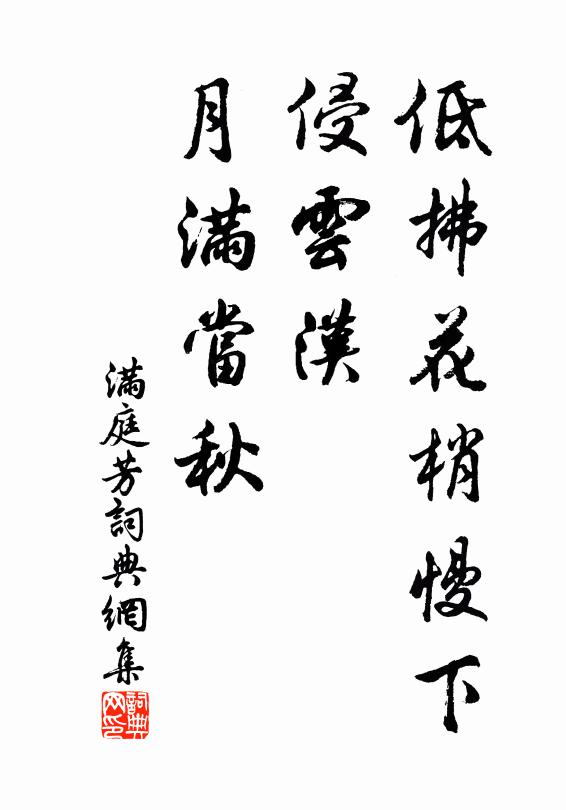 低拂花梢慢下
侵雲漢
月滿當秋
滿庭芳詞典網集
詞典网印